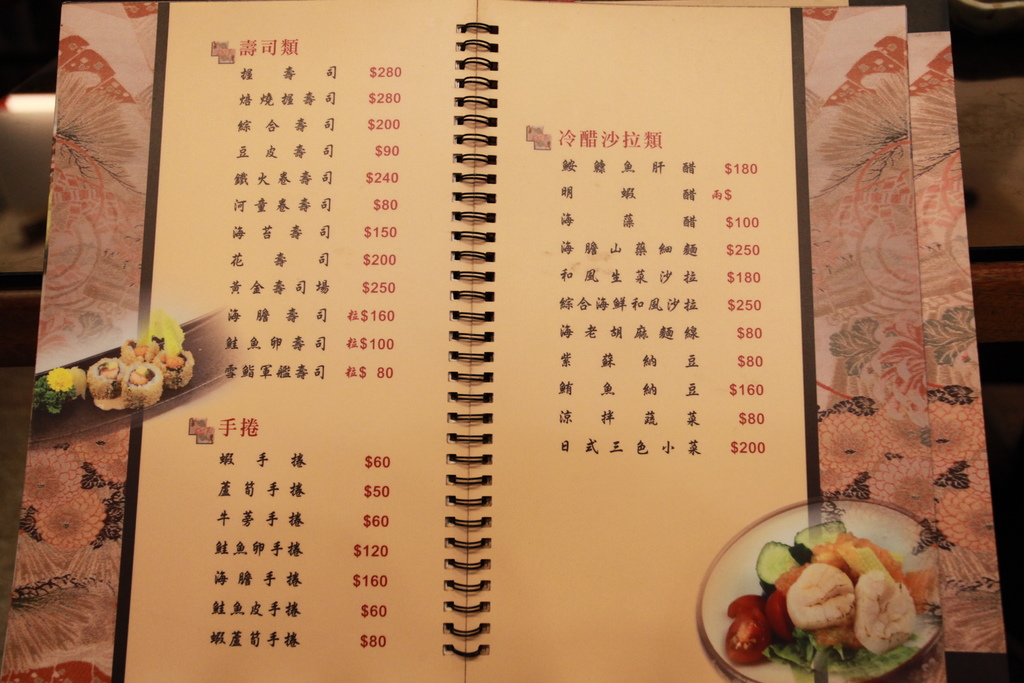 壽司類
握壽司 $280
焙燒握壽司 $280
綜合壽司 $200
豆皮壽司 $90
鐵火卷壽司 $240
河童卷壽司 $80
海苔壽司 $150
花壽司 $200
黃金壽司場 $250
海膽壽司 粒$160
鮭魚卵壽司 粒$100
雪鮨軍艦壽司 粒$ 80
手捲
蝦手捲 $60
蘆筍手捲 $50
牛蒡手捲 $60
鮭魚卵手捲 $120
海膽手捲 $160
鮭魚皮手捲 $60
蝦蘆筍手捲 $80
冷醋沙拉類
鮟鱇魚肝醋 $180
明蝦醋 兩$
海藻醋 $100
海膽山藥細麵 $250
和風生菜沙拉 $180
綜合海鮮和風沙拉 $250
海老胡麻麵線 $80
紫蘇納豆 $80
鮪魚納豆 $160
涼拌蔬菜 $80
日式三色小菜 $200